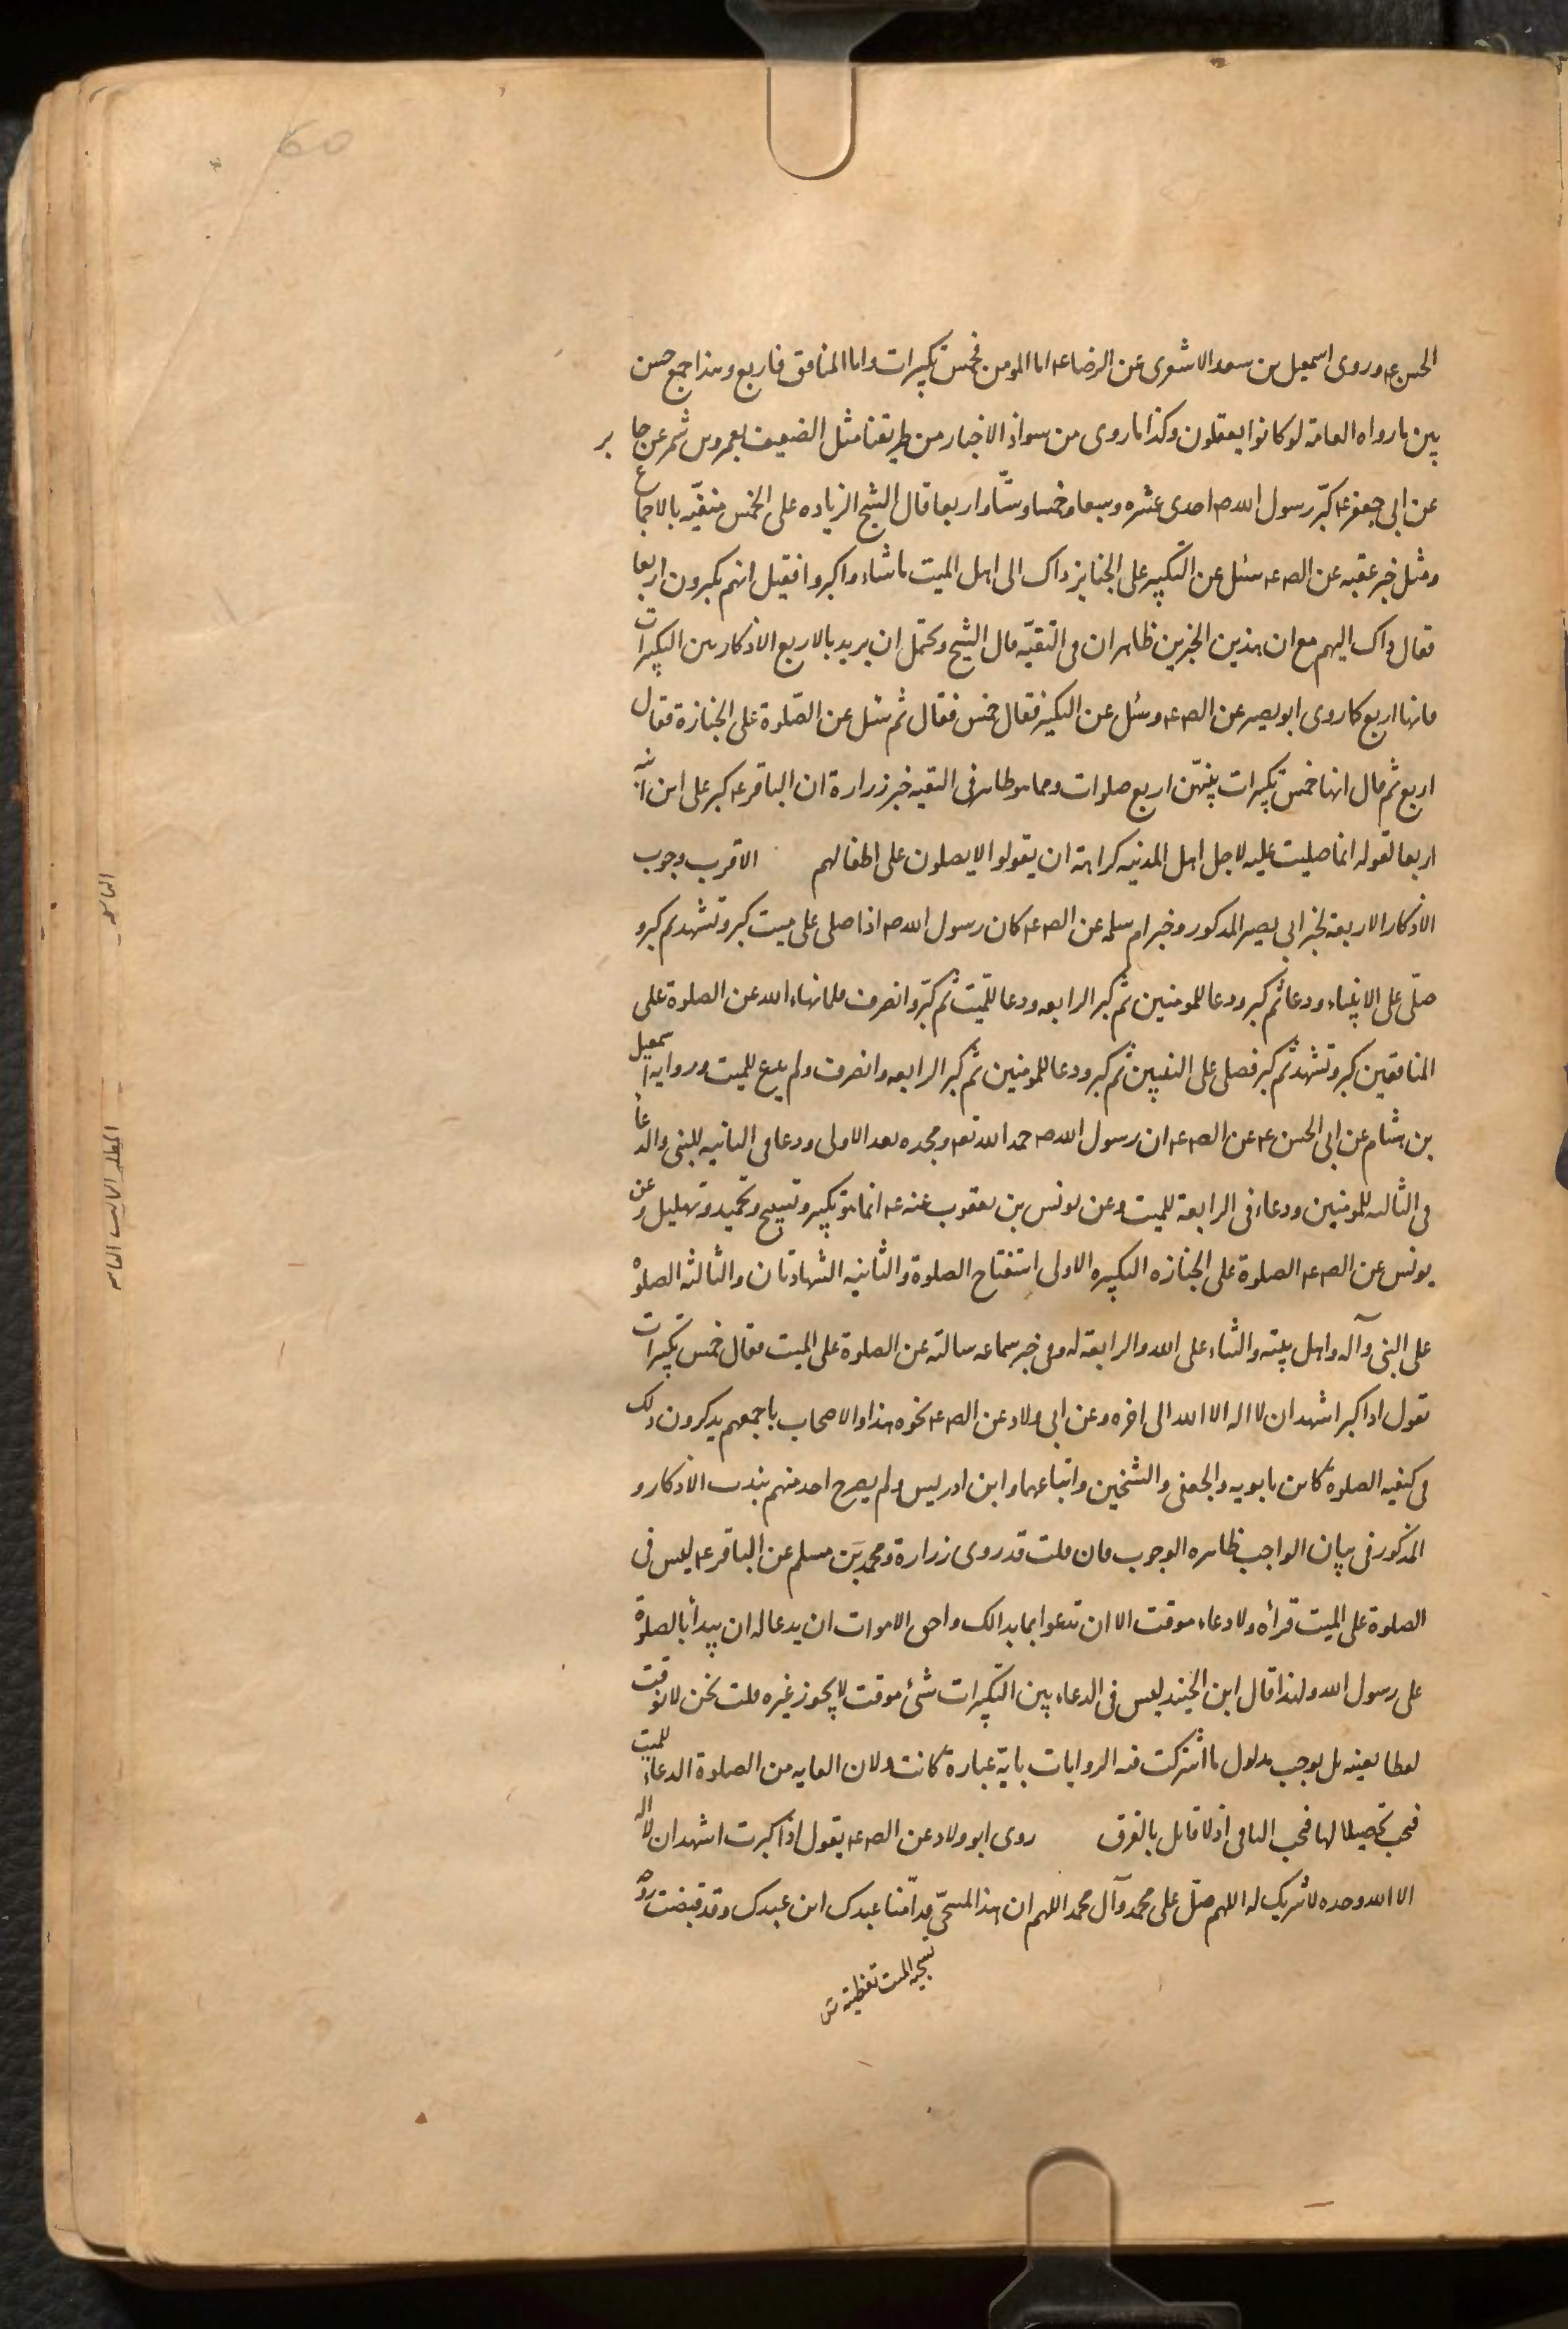 60
الحسن ع و روى اسمعيل بن سعد الاشعرى عن الرضا ع اما المومن فخمس تكبيرات و اما المنافق فاربع و هذا جمع حسن
بين ما رواه العامة لو كانوا يعقلون و كذا ما روى من سواذ الاخبار من طريقنا مثل الضعيف بعمرو بن شمر عن جابر
عن ابى جعفر ع كبّر رسول الله ص احدى عشره و سبعا و خمسا و ستّا و اربعا قال الشيخ الزياده على الخمس منفيّه بالاجماع
و مثل خبر عقبه عن الص ع سئل عن التكبير على الجنايز ذاك الى اهل الميت ما شاءوا كبروا فقيل انهم يكبرون اربعا
فقال ذاك اليهم مع ان هذين الخبرين ظاهران فى التقيّه قال الشيخ و يحتمل ان يريد بالاربع الاذكار بين التكبيرات
فانها اربع كما روى ابو بصير عن الص ع و سئل عن التكبير فقال خمس فقال ثم سئل عن الصّلوة على الجنازة فقال
اربع ثم قال انها خمس تكبيرات بينهّن اربع صلوات و مما هو ظاهر فى التقيه خبر زرارة ان الباقر ع كبر على ابن ابنه
اربعا لقوله انما صليت عليه لاجل اهل المدينه كراهة ان يقولوا لا يصلون على اطفالهم الاقرب وجوب
الاذكار الاربعه لخبر ابى بصير المذكور و خبر ام سلمه عن الص ع كان رسول الله ص اذا صلى على ميت كبر و تشهد ثم كبر و
صلّى على الانبياء و دعا ثم كبر و دعا للمومنين ثم كبر الرابعه و دعا للميّت ثم كبّر و انصرف فلما نهاه الله عن الصلوة على
المنافقين كبر و تشهد ثم كبر فصلى على النبيين ثم كبر و دعا للمومنين ثم كبر الرابعه و انصرف و لم يدع للميت و روايه اسمعيل
بن هشام عن ابى الحسن ع عن الص ع ان رسول الله ص حمد الله تعه و مجده بعد الاولى و دعا فى الثانيه للنبى و الدعاء
فى الثالثه للمومنين و دعاء فى الرابعة للميت و عن يونس بن يعقوب عنه ع انما هو تكبير و تسبيح و تحميد و تهليل و عن
يونس عن الص ع الصلوة على الجنازه التكبيره الاولى استفتاح الصلوة و الثانيه الشهادتان و الثالثه الصلوة
على النبى و آله و اهل بيته و الثناء على الله و الرابعة له و فى خبر سماعه سالته عن الصلوة على الميت فقال خمس تكبيرات
تقول اذا كبر اشهد ان لا اله الا الله الى اخره و عن ابى ولاد عن الص ع نحوه هذا و الاصحاب باجمعهم يذكرون ذلك
فى كيفيه الصلوة كابن بابويه و الجعفى و الشيخين و اتباعهما و ابن ادريس و لم يصرح احد منهم بندب الاذكار و
المذكور فى بيان الواجب ظاهره الوجوب فان قلت قد روى زرارة و محمد بن مسلم عن الباقر ع ليس فى
الصلوة على الميت قرأة و لا دعاء موقت الا ان تدعوا بما بدا لك و احق الاموات ان يدعا له ان يبدأ بالصلوة
على رسول الله و لهذا قال ابن الجنيد ليس فى الدعاء بين التكبيرات شئ موقت لا يجوز غيره قلت نحن لا نوقت
لفظا بعينه بل يوجب مدلول ما اشتركت فيه الروايات باىّ عبارة كانت و لان الغايه من الصلوة الدعاء للميت
فيجب تحصيلا لها فيجب الباقى اذ لا قائل بالفرق روى ابو ولاد عن الص ع يقول اذا كبرت اشهد ان لا اله
الا الله وحده لا شريك له اللهم صلّ على محمد و آل محمد اللهم ان هذا المسجّى قدامّنا عبدك ابن عبدك و قد قبضت روحه
تسجيه الميت تغطيته